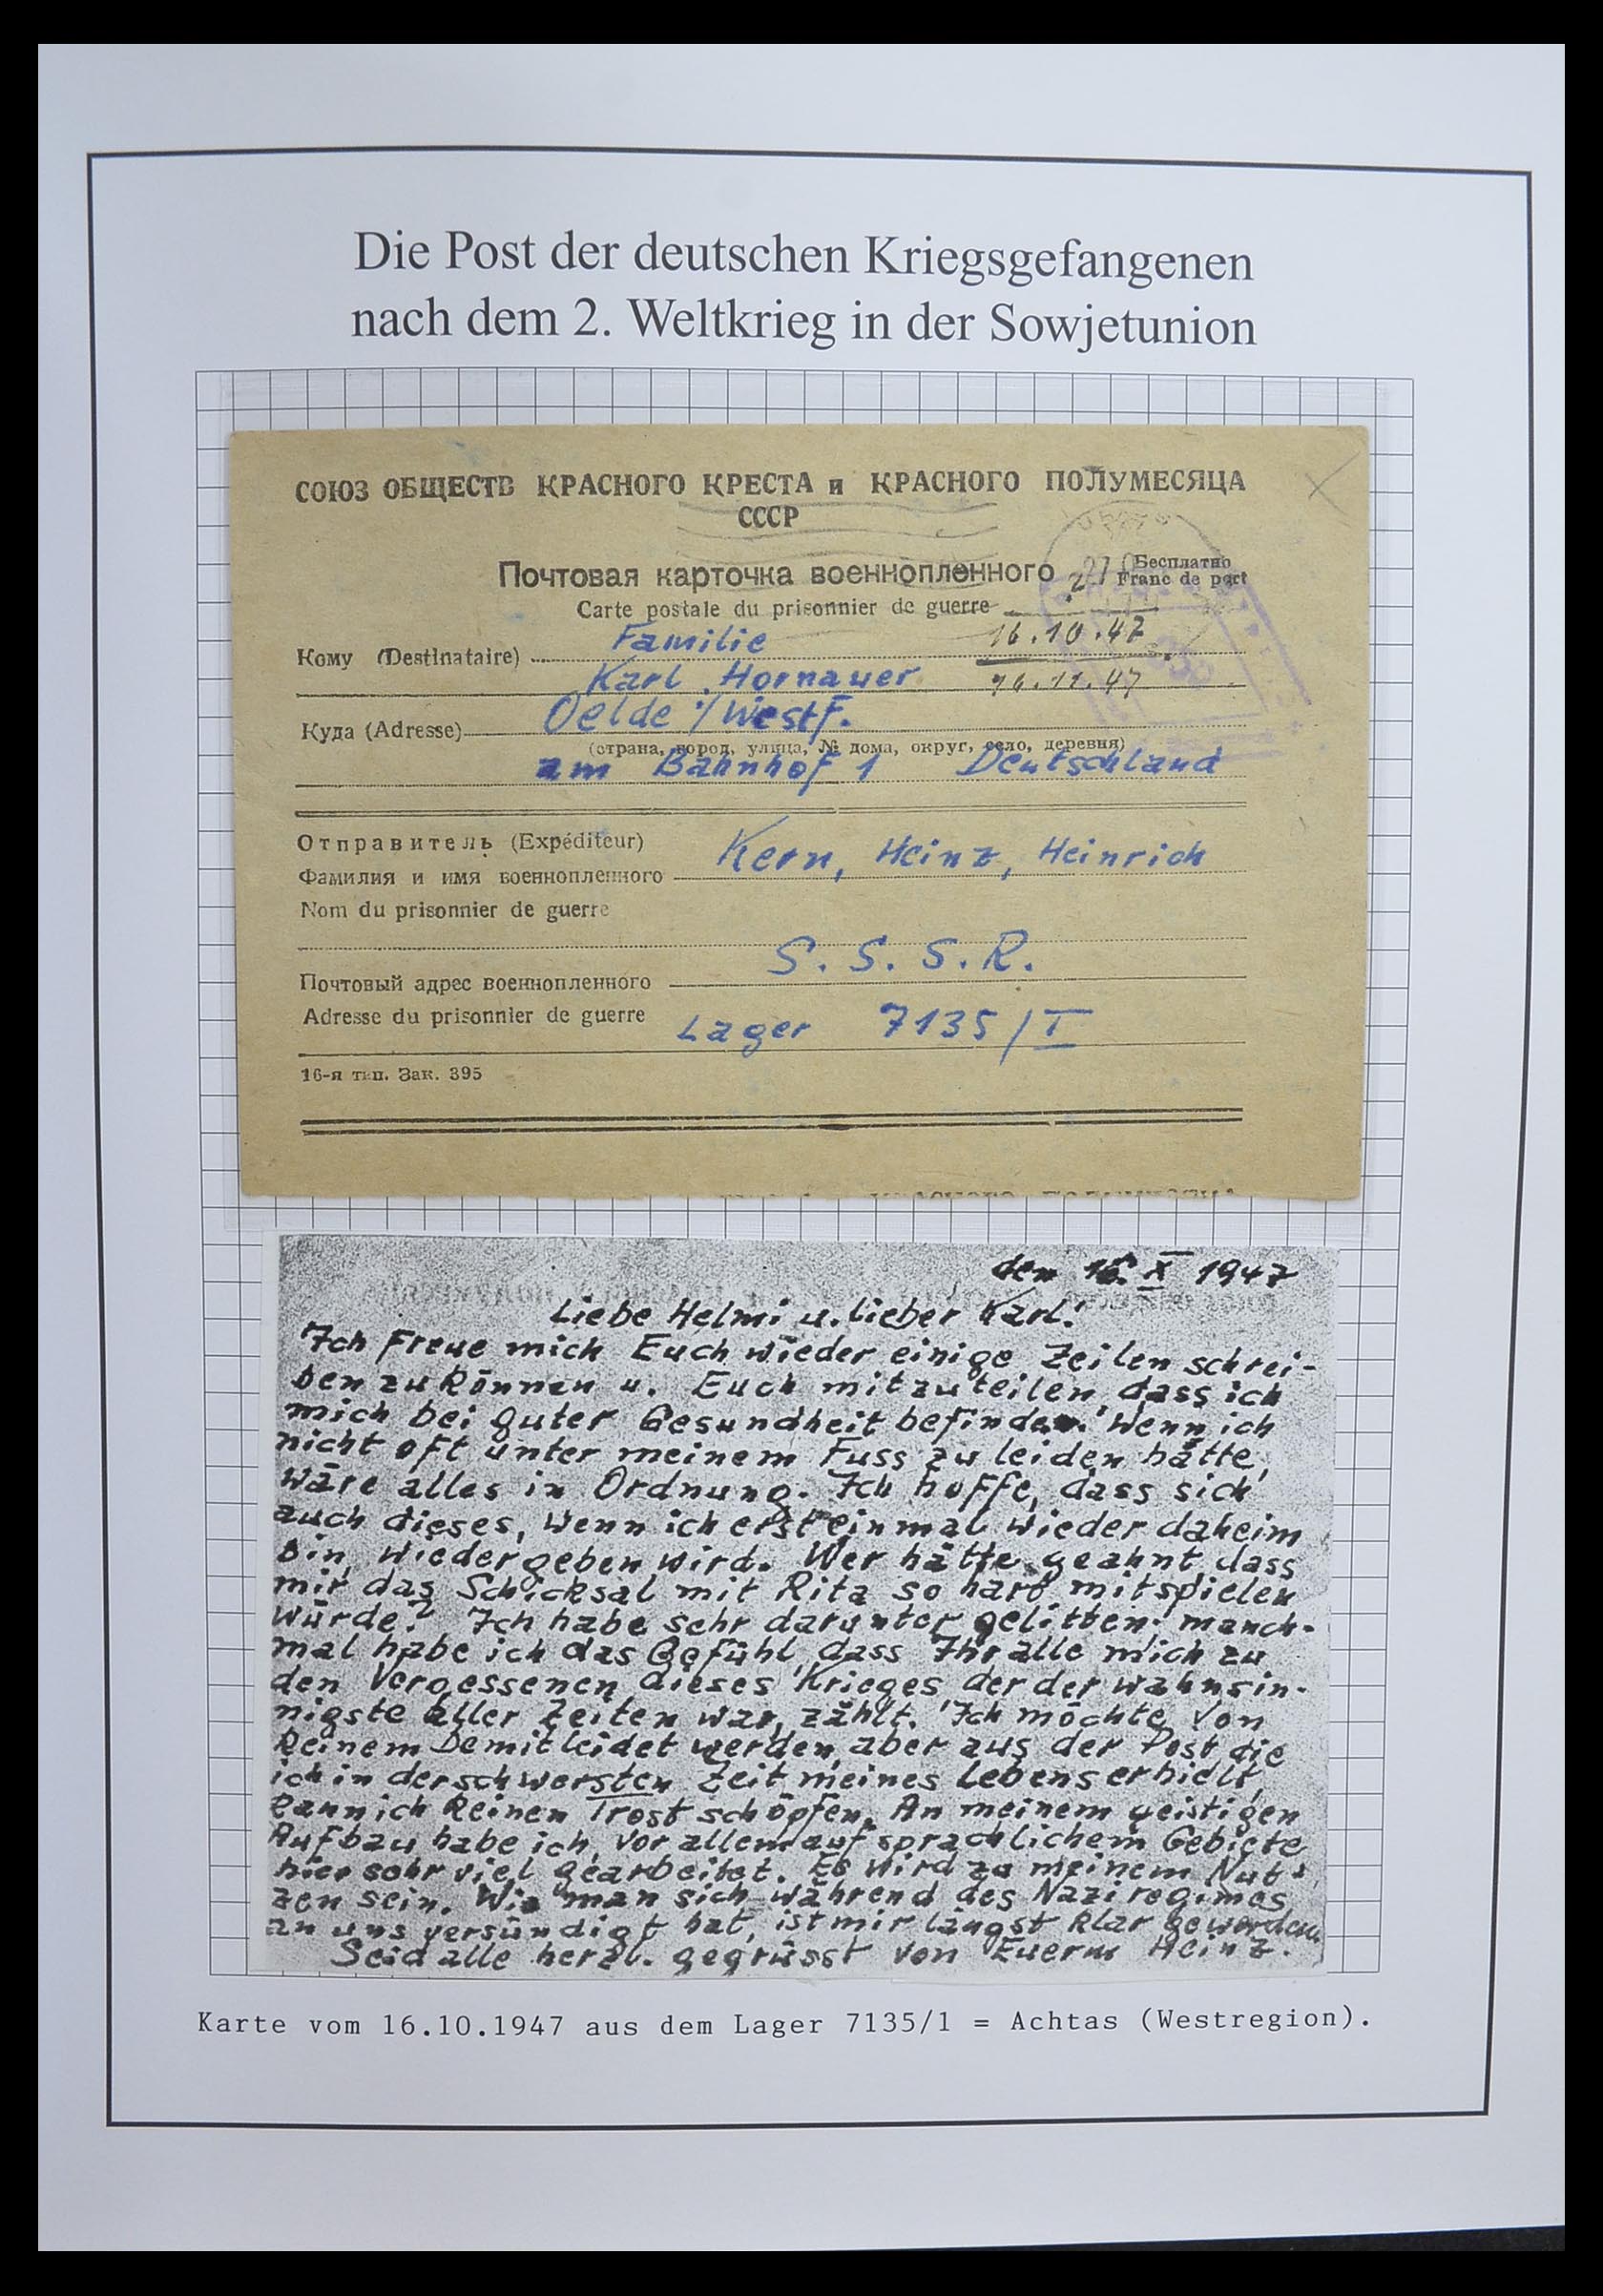 Die Post der deutschen Kriegsgefangenen
nach dem 2. Weltkrieg in der Sowjetunion
СОЮЗ ОБЩЕСТВ КРАСНОГО КРЕСТА и КРАСНОГО ПОЛУМЕСЯЦА
СССР
Почтовая карточка военнопленного
Бесплатно
Franc de port
Carte postale du prisonnier de guerre
16.10.47
Кому (Destinataire) Familie
Karl Hornauer
16.11.47
Куда (Adresse) Oelde i/Westf.
(страна, город, улица, № дома, округ, село, деревня)
am Bahnhof 1 Deutschland
Отправитель (Expéditeur)
Фамилия и имя военнопленного Kern, Heinz, Heinrich
Nom du prisonnier de guerre
S. S. S. R.
Почтовый адрес военнопленного
Adresse du prisonnier de guerre Lager 7135/I
16-я тип. Зак. 395
den 16. X 1947
Liebe Helmi u. lieber Karl!
Ich freue mich Euch wieder einige Zeilen schrei-
ben zu können u. Euch mitzuteilen, dass ich
mich bei guter Gesundheit befinde. Wenn ich
nicht oft unter meinem Fuss zu leiden hätte,
wäre alles in Ordnung. Ich hoffe, dass sich
auch dieses, wenn ich erst einmal wieder daheim
bin, wiedergeben wird. Wer hätte geahnt, dass
mir das Schicksal mit Rita so hart mitspielen
würde? Ich habe sehr darunter gelitten. manch-
mal habe ich das Gefühl, dass Ihr alle mich zu
den Vergessenen dieses Krieges der der wahnsin-
nigste aller Zeiten war, zählt. Ich möchte von
keinem bemitleidet werden, aber aus der Post, die
ich in der schwersten Zeit meines Lebens erhielt,
kann ich keinen Trost schöpfen. An meinem geistigen
Aufbau habe ich, vor allem auf sprachlichem Gebiete
hier sehr viel gearbeitet. Es wird zu meinem Nut-
zen sein. Wie man sich während des Naziregimes
an uns versündigt hat, ist mir längst klar geworden.
Seid alle herzl. gegrüsst von Euerm Heinz.
Karte vom 16.10.1947 aus dem Lager 7135/1 = Achtas (Westregion).